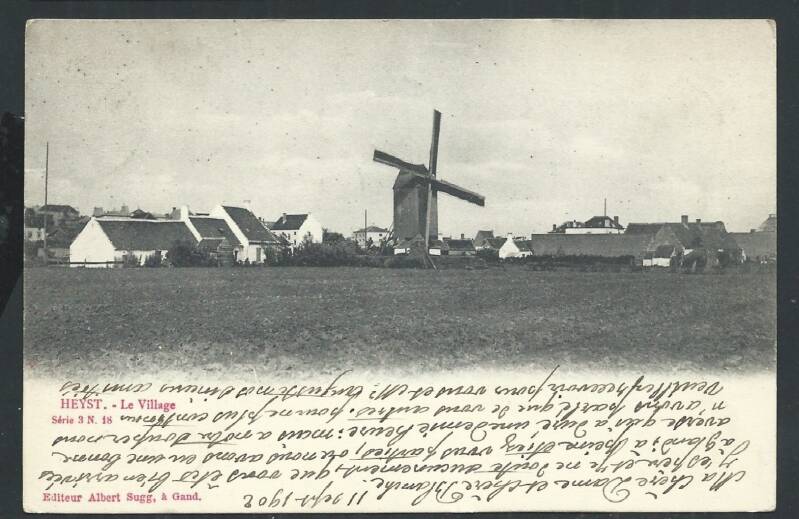 HEYST. - Le Village
Série 3 N. 18
Editeur Albert Sugg, à Gand.
11 Sept. 1902
Ma chère Dame et chère Blanche.
J'espère et je ne doute aucunement, que vous êtes bien arrivées
à Gand; à peine étiez vous parties, où nous avons eu une bonne
averse qui a duré une demie heure; mais à notre souper nous
n'avons parlé que de vous autres, pour ne plus
Veuillez recevoir pour vous et Mr. Auguste nos amitiés